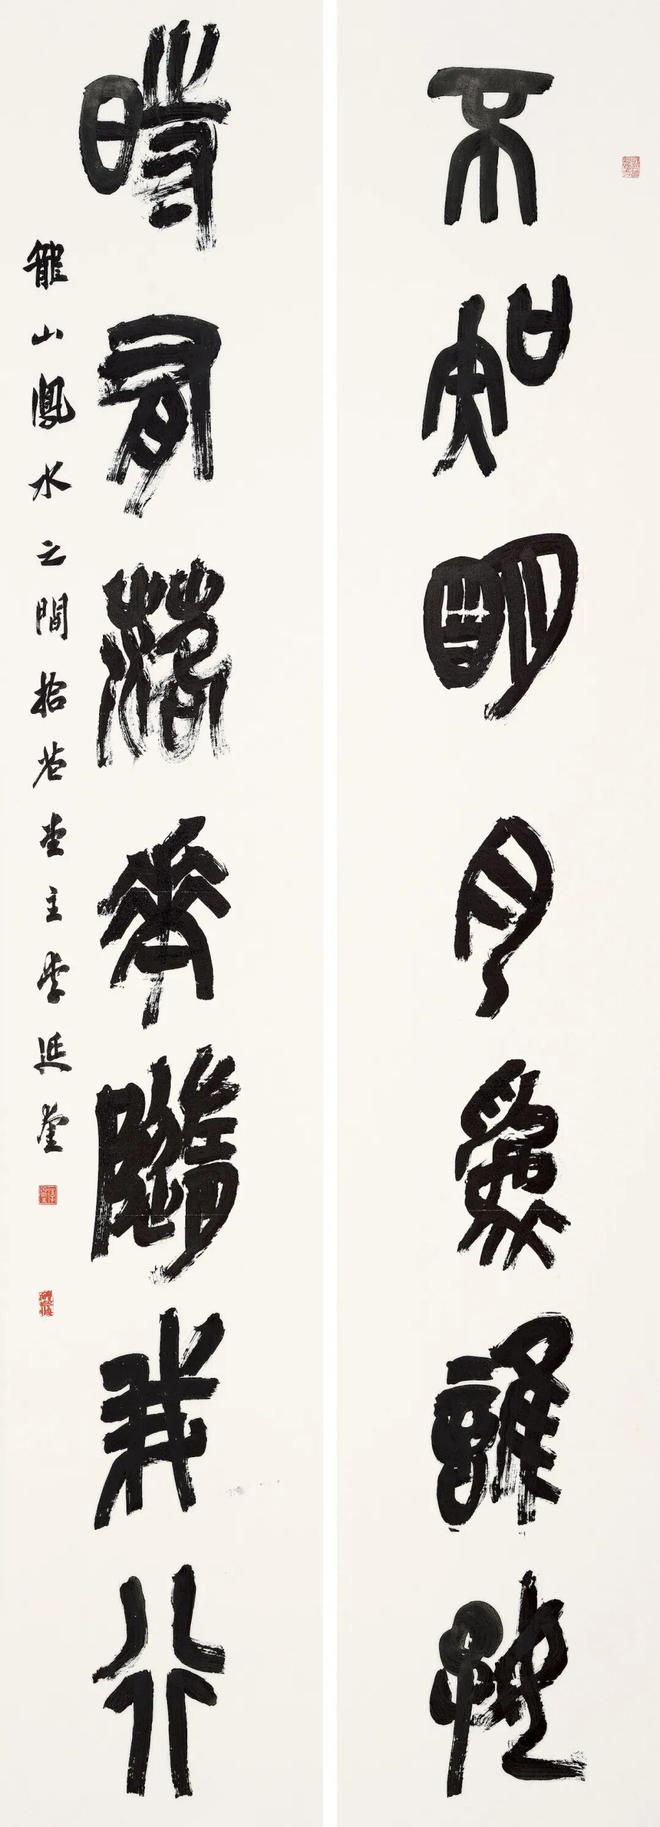 不知明月為誰好
時有落華隨我行
龍山鳳水之間拾堂主李延